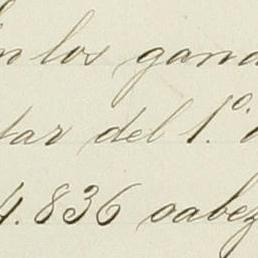 in los gana
tar del 1.º d
4.836 cabez